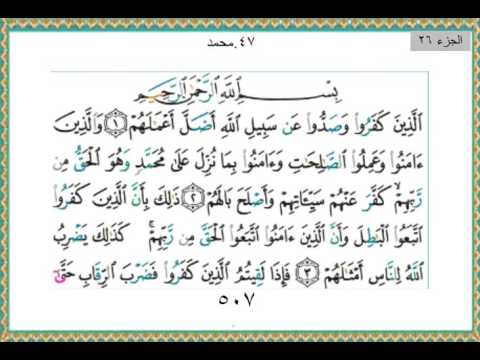 الجزء ٢٦
٤٧.محمد
بِسْمِ اللَّهِ الرَّحْمَٰنِ الرَّحِيمِ
الَّذِينَ كَفَرُوا وَصَدُّوا عَن سَبِيلِ اللَّهِ أَضَلَّ أَعْمَٰلَهُمْ ۝١ وَالَّذِينَ
ءَامَنُوا وَعَمِلُوا الصَّٰلِحَٰتِ وَءَامَنُوا بِمَا نُزِّلَ عَلَىٰ مُحَمَّدٍ وَهُوَ الْحَقُّ مِن
رَّبِّهِمْ ۙ كَفَّرَ عَنْهُمْ سَيِّـَٔاتِهِمْ وَأَصْلَحَ بَالَهُمْ ۝٢ ذَٰلِكَ بِأَنَّ الَّذِينَ كَفَرُوا
اتَّبَعُوا الْبَٰطِلَ وَأَنَّ الَّذِينَ ءَامَنُوا اتَّبَعُوا الْحَقَّ مِن رَّبِّهِمْ ۚ كَذَٰلِكَ يَضْرِبُ
اللَّهُ لِلنَّاسِ أَمْثَٰلَهُمْ ۝٣ فَإِذَا لَقِيتُمُ الَّذِينَ كَفَرُوا فَضَرْبَ الرِّقَابِ حَتَّىٰ
٥٠٧